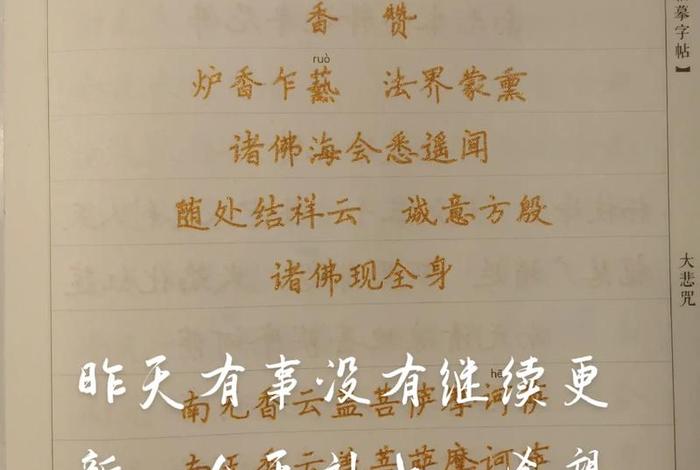 香赞
ruò
炉香乍爇 法界蒙熏
诸佛海会悉遥闻
随处结祥云 诚意方殷
诸佛现全身
昨天有事没有继续更
hē
南无香云盖菩萨摩诃萨
摹字帖】
大悲咒